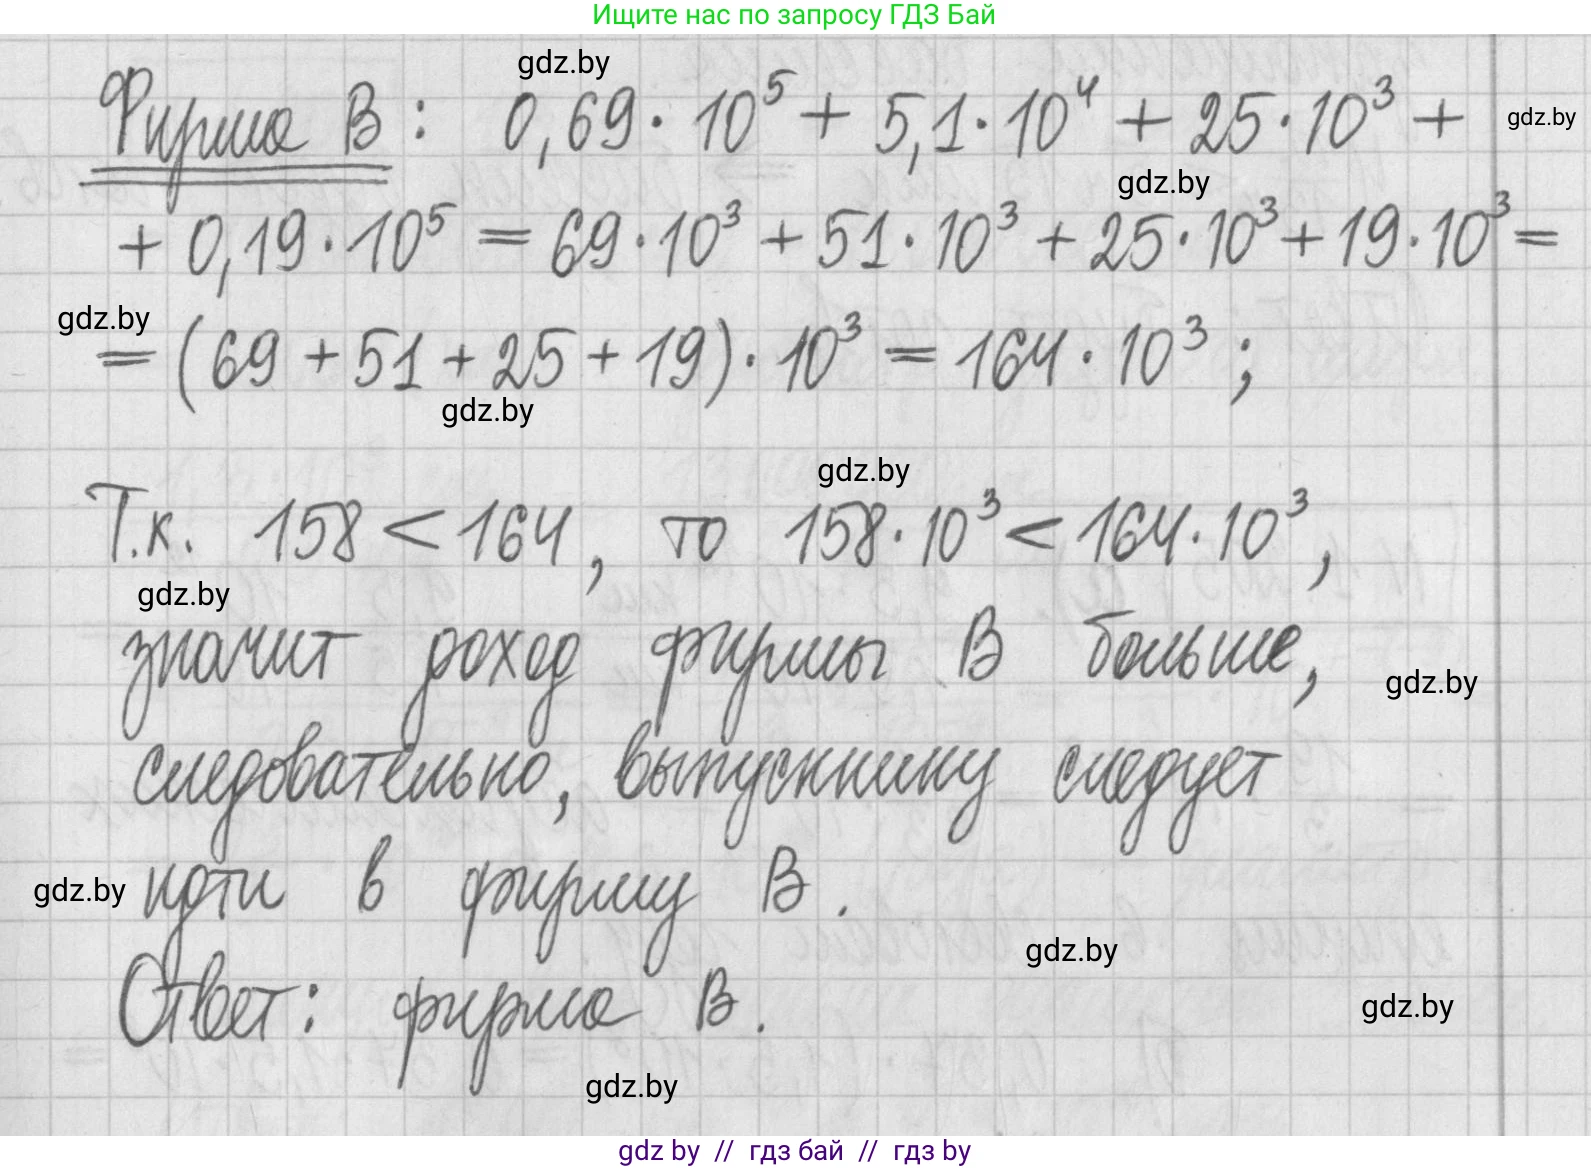 Ищите нас по запросу ГДЗ Бай
gdz.by
Фирма В: 0,69·10⁵ + 5,1·10⁴ + 25·10³ +
gdz.by
gdz.by
+ 0,19·10⁵ = 69·10³ + 51·10³ + 25·10³ + 19·10³ =
gdz.by
= (69 + 51 + 25 + 19)·10³ = 164·10³;
gdz.by
gdz.by
Т.к. 158 < 164, то 158·10³ < 164·10³,
gdz.by
значит доход фирмы В больше,
gdz.by
следовательно, выпускнику следует
идти в фирму В.
gdz.by
gdz.by
Ответ: фирма В.
gdz.by
gdz.by
gdz by // гдз бай // гдз by